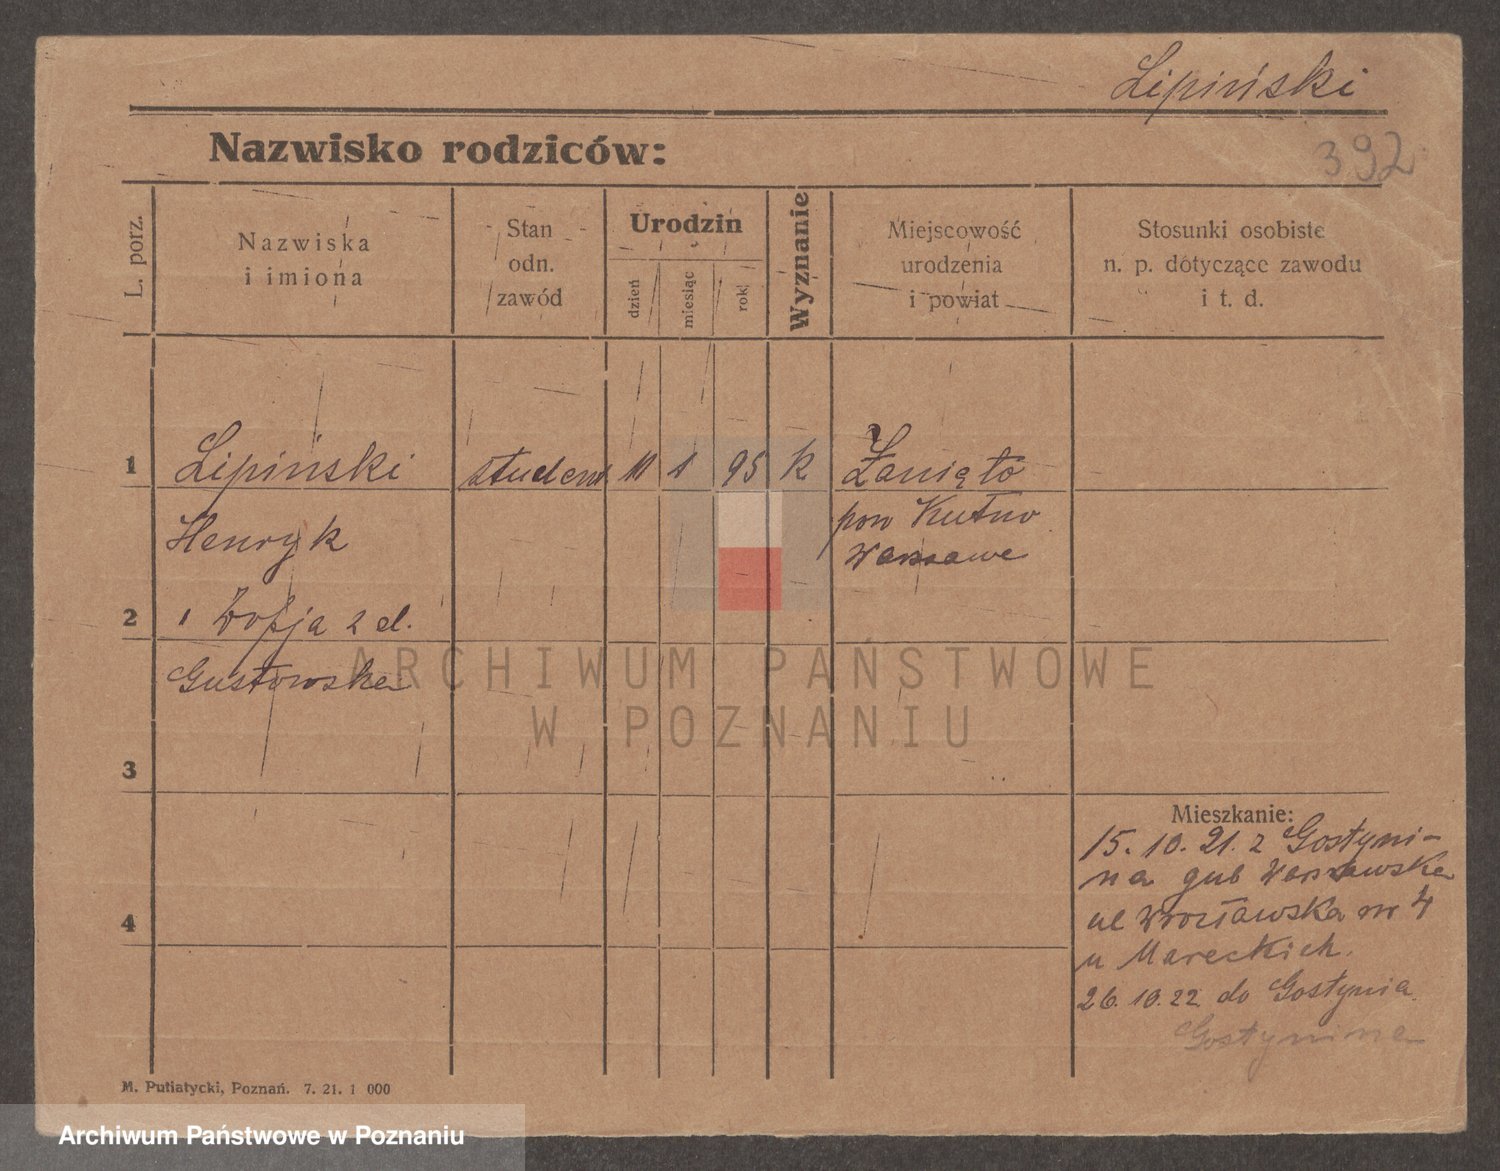 Lipiński
392
Nazwisko rodziców:
L. porz.
Nazwiska
i imiona
Stan
odn.
zawód
Urodzin
dzień
miesiąc
rok
Wyznanie
Miejscowość
urodzenia
i powiat
Stosunki osobiste
n. p. dotyczące zawodu
i t. d.
1 Lipiński student 11 1 95 k Żanięto
Henryk pow Kutno
Warszawa
2 Zofja z d.
Gustowska
ARCHIWUM PAŃSTWOWE
W POZNANIU
3
4
Mieszkanie:
15. 10. 21. z Gostyni-
na gub Warszawska
ul Wrocławska nr 4
u Mareckich.
26. 10. 22 do Gostynia
Gostynina
M. Putiatycki, Poznań. 7. 21. 1 000
Archiwum Państwowe w Poznaniu